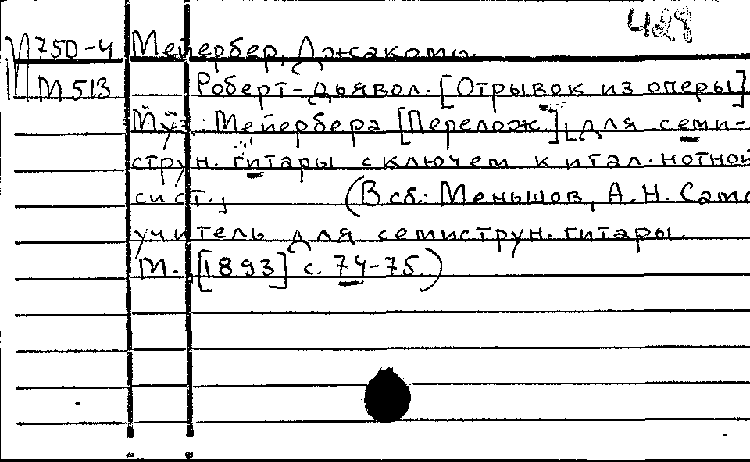 428
М750-4 Мейербер, Джакомо.
М513 Роберт-дьявол. [Отрывок из оперы]
Муз. Мейербера [Перелож.] для семи-
струн. гитары с ключем к итал. нотной
сист., (В сб.: Меньшов, А.Н. Само
учитель для семиструн. гитары.
М. [1893] с. 74-75.)